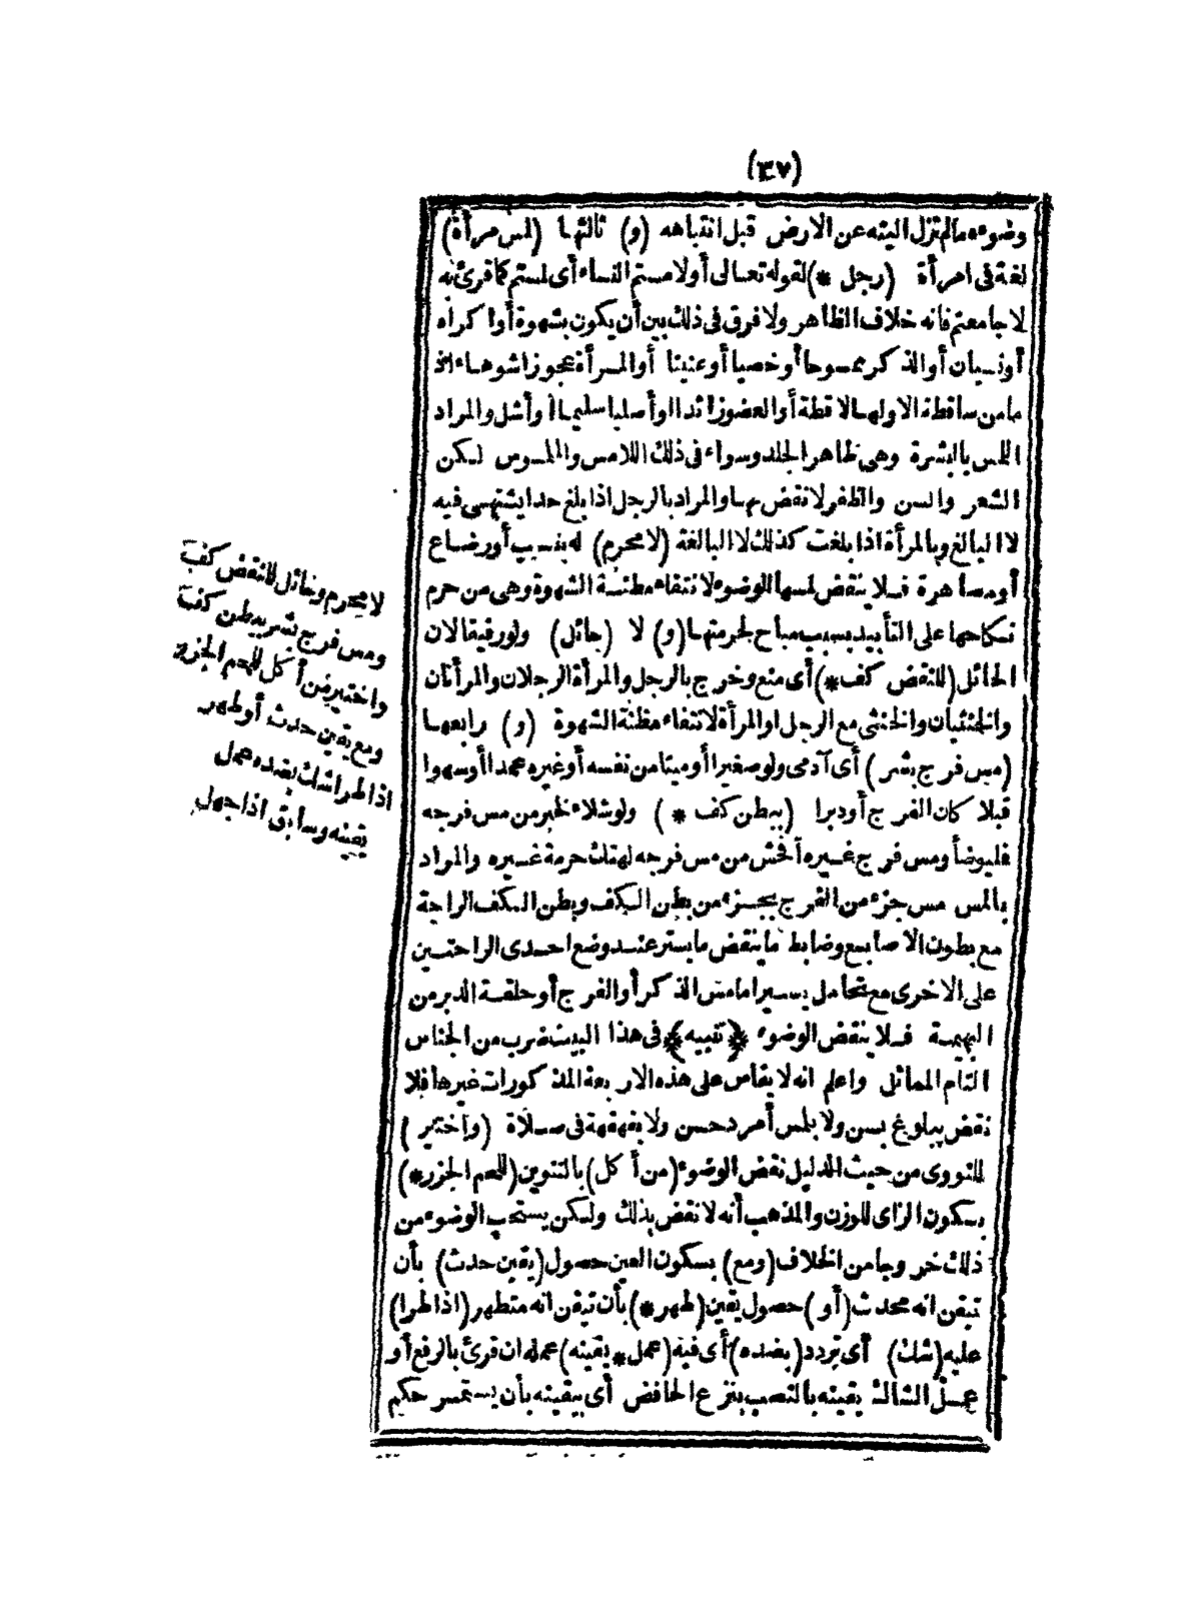 (٣٧)
وضوءه مالم تزل اليته عن الارض قبل انتباهه (و) ثالثها (لمس مرأة)
لغة فى امرأة (رجل *) لقوله تعالى أولامستم النساء أى لمستم كما قرئ به
لا جامعتم فانه خلاف الظاهر ولا فرق فى ذلك بين أن يكون بشهوة أواكراه
أونسيان أوالذكر ممسوحا أوخصيا أوعنينا أوالمرأة عجوزا شوهاء اذ
مامن ساقطة الاولها لاقطة أوالعضو زائدا أوأصليا سليما أوأشل والمراد
اللمس بالبشرة وهى ظاهر الجلد وسواء فى ذلك اللامس والملموس لكن
الشعر والسن والظفر لا نقض بها والمراد بالرجل اذا بلغ حدا يشتهى فيه
لا البالغ وبالمرأة اذا بلغت كذلك لا البالغة (لا محرم) له بنسب أورضاع
أومصاهرة فلا ينقض لمسها الوضوء لانتفاء مظنة الشهوة وهى من حرم
نكاحها على التأبيد بسبب مباح لحرمتها (و) لا (حائل) ولورقيقا لان
الحائل (للنقض كف *) أى منع وخرج بالرجل والمرأة الرجلان والمرأتان
والخنثيان والخنثى مع الرجل اوالمرأة لانتفاء مظنة الشهوة (و) رابعها
(مس فرج بشر) أى آدمى ولوصغيرا أوميتا من نفسه أوغيره عمدا أوسهوا
قبلا كان الفرج أودبرا (ببطن كف *) ولوشلاء لخبر من مس فرجه
فليتوضأ ومس فرج غيره أفحش من مس فرجه لهتك حرمة غيره والمراد
بالمس مس جزء من الفرج بجزء من بطن الكف وبطن الكف الراحة
مع بطون الاصابع وضابط ما ينقض ما يستر عند وضع احدى الراحتين
على الاخرى مع تحامل يسير امامس الذكر أوالفرج أوحلقة الدبر من
البهيمة فلا ينقض الوضوء ﴿تنبيه﴾ فى هذا البيت ضرب من الجناس
التام المماثل واعلم انه لا يقاس على هذه الاربعة المذكورات غيرها فلا
نقض ببلوغ بسن ولا بلمس أمرد حسن ولا بقهقهة فى صلاة (واختير)
للنووى من حيث الدليل نقض الوضوء (من أكل) بالتنوين (للحم الجزر *)
بسكون الزاى للوزن والمذهب أنه لا نقض بذلك ولكن يستحب الوضوء من
ذلك خروجا من الخلاف (ومع) بسكون العين حصول (يقين حدث) بأن
تيقن انه محدث (أو) حصول يقين (طهر *) بأن تيقن انه متطهر (اذا طرا)
عليه (شك) أى تردد (بضده) أى فيه (عمل * يقينه) عمله ان قرئ بالرفع أو
عمل الشاك يقينه بالنصب بنزع الخافض أى بيقينه بأن يستمر حكم
لا محرم وحائل للنقض كف
ومس فرج بشر ببطن كف
واختير من أكل للحم الجزر
ومع يقين حدث أو طهر
اذا طرا شك بضده عمل
يقينه وسابق اذا جهل